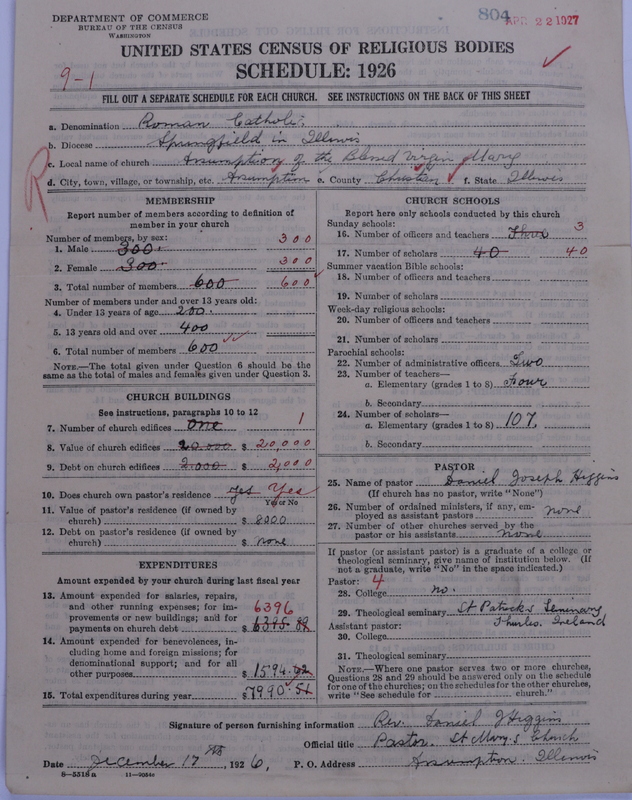 DEPARTMENT OF COMMERCE
BUREAU OF THE CENSUS
WASHINGTON
804 APR 22 1927
UNITED STATES CENSUS OF RELIGIOUS BODIES
SCHEDULE: 1926
9-1
FILL OUT A SEPARATE SCHEDULE FOR EACH CHURCH. SEE INSTRUCTIONS ON THE BACK OF THIS SHEET
R
a. Denomination Roman Catholic
b. Diocese Springfield in Illinois
c. Local name of church Assumption of the Blessed Virgin Mary
d. City, town, village, or township, etc. Assumption e. County Christian f. State Illinois
MEMBERSHIP
Report number of members according to definition of
member in your church
Number of members, by sex:
1. Male 300. 300
2. Female 300. 300
3. Total number of members 600 600
Number of members under and over 13 years old:
4. Under 13 years of age 200.
5. 13 years old and over 400
6. Total number of members 600
NOTE.—The total given under Question 6 should be
same as the total of males and females given under Question 3.
CHURCH BUILDINGS
See instructions, paragraphs 10 to 12
7. Number of church edifices one 1
8. Value of church edifices 20.000 $ 20,000
9. Debt on church edifices 2.000 $ 2,000
10. Does church own pastor's residence yes Yes
Yes or No
11. Value of pastor's residence (if owned by
church) $ 8000
12. Debt on pastor's residence (if owned by
church) $ none
EXPENDITURES
Amount expended by your church during last fiscal year
13. Amount expended for salaries, repairs,
and other running expenses; for im-
provements or new buildings; and for
payments on church debt $ 6395. 6396
14. Amount expended for benevolences, in-
cluding home and foreign missions; for
denominational support; and for all
other purposes $ 1594.
15. Total expenditures during year $ 7990.51
CHURCH SCHOOLS
Report here only schools conducted by this church
Sunday schools:
16. Number of officers and teachers Three 3
17. Number of scholars 40 40
Summer vacation Bible schools:
18. Number of officers and teachers
19. Number of scholars
Week-day religious schools:
20. Number of officers and teachers
21. Number of scholars
Parochial schools:
22. Number of administrative officers Two
23. Number of teachers—
a. Elementary (grades 1 to 8) Four
b. Secondary
24. Number of scholars—
a. Elementary (grades 1 to 8) 107
b. Secondary
PASTOR
25. Name of pastor Daniel Joseph Higgins
(If church has no pastor, write "None")
26. Number of ordained ministers, if any, em-
ployed as assistant pastors none
27. Number of other churches served by the
pastor or his assistants none
If pastor (or assistant pastor) is a graduate of a college or
theological seminary, give name of institution below. (If
not a graduate, write "No" in the space indicated.)
Pastor: 4
28. College no.
29. Theological seminary St Patrick's Seminary
Assistant pastor: Thurles. Ireland
30. College
31. Theological seminary
NOTE.—Where one pastor serves two or more churches,
Questions 28 and 29 should be answered only on the schedule
for one of the churches; on the schedules for the other churches,
write "See schedule for church."
Signature of person furnishing information Rev. Daniel J Higgins
Official title Pastor. St Mary's Church
Date December 17th, 1926, P. O. Address Assumption. Illinois
8—5518 a 11—9084c